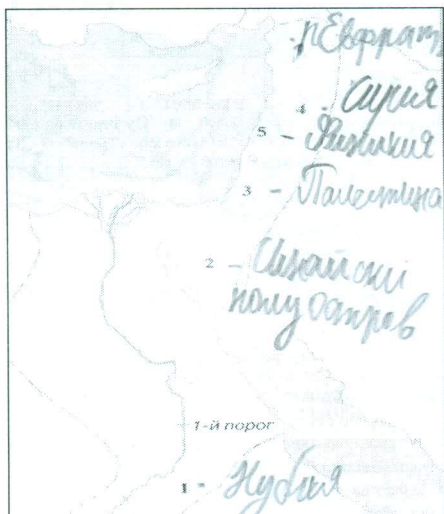 р Евфрат
4 - Сирия
5 - Финикия
3 - Палестина
2 - Синайский
полуостров
1-й порог
1 - Нубия